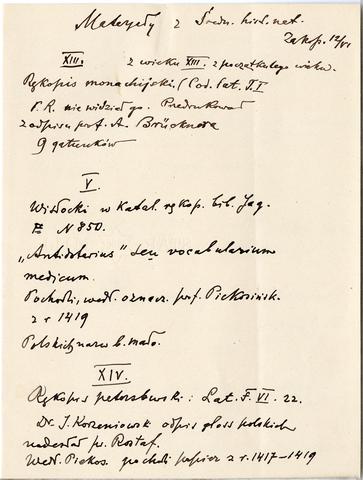 Materyały z Średn. hist. nat.
Zakop. 12/VI
XIII. z wieku XIII. z początkulego wieku.
Rękopis monachijski (Cod. lat. F. I
F. R. nie widział go. Przedrukował
z odpisu prof. A. Brücknera
9 gatunków
V.
Wisłocki w Katal. rękop. bib. Jag.
N 850.
„Antidotarius" seu vocabularium
medicum.
Pochodzi, wedł. oznacz. prof. Piekosińsk.
z r 1419
Polskich nazw b. mało.
XIV.
Rękopis petersburski: Lat. F. VI. 22.
Dr. J. Korzeniowsk odpis gloss polskich
nadesłał pr. Rostaf.
Wedł. Piekos. pochodzi papier z r. 1417–1419